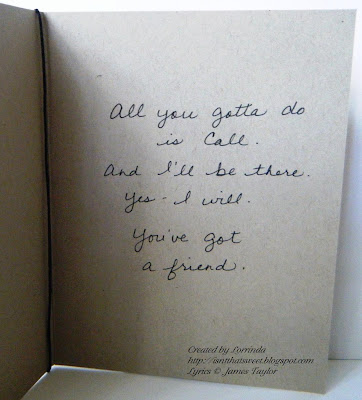 All you gotta do
is call.
And I'll be there.
Yes - I will.
You've got
a friend.
Created by Lorrinda
http://isntthatsweet.blogspot.com
Lyrics © James Taylor